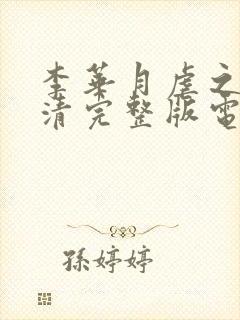 李華月虐之
清完整版電
孫婷婷